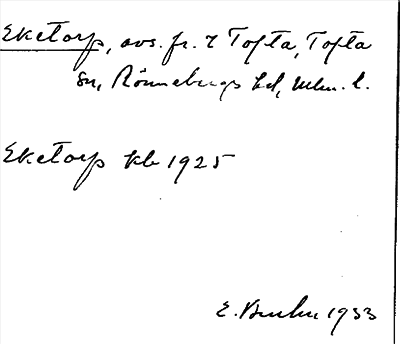 Eketorp, avs. fr. 2 Tofta, Tofta
sn, Rönnebergs hd, Mlm. l.
Eketorp kb 1925
E. 1933